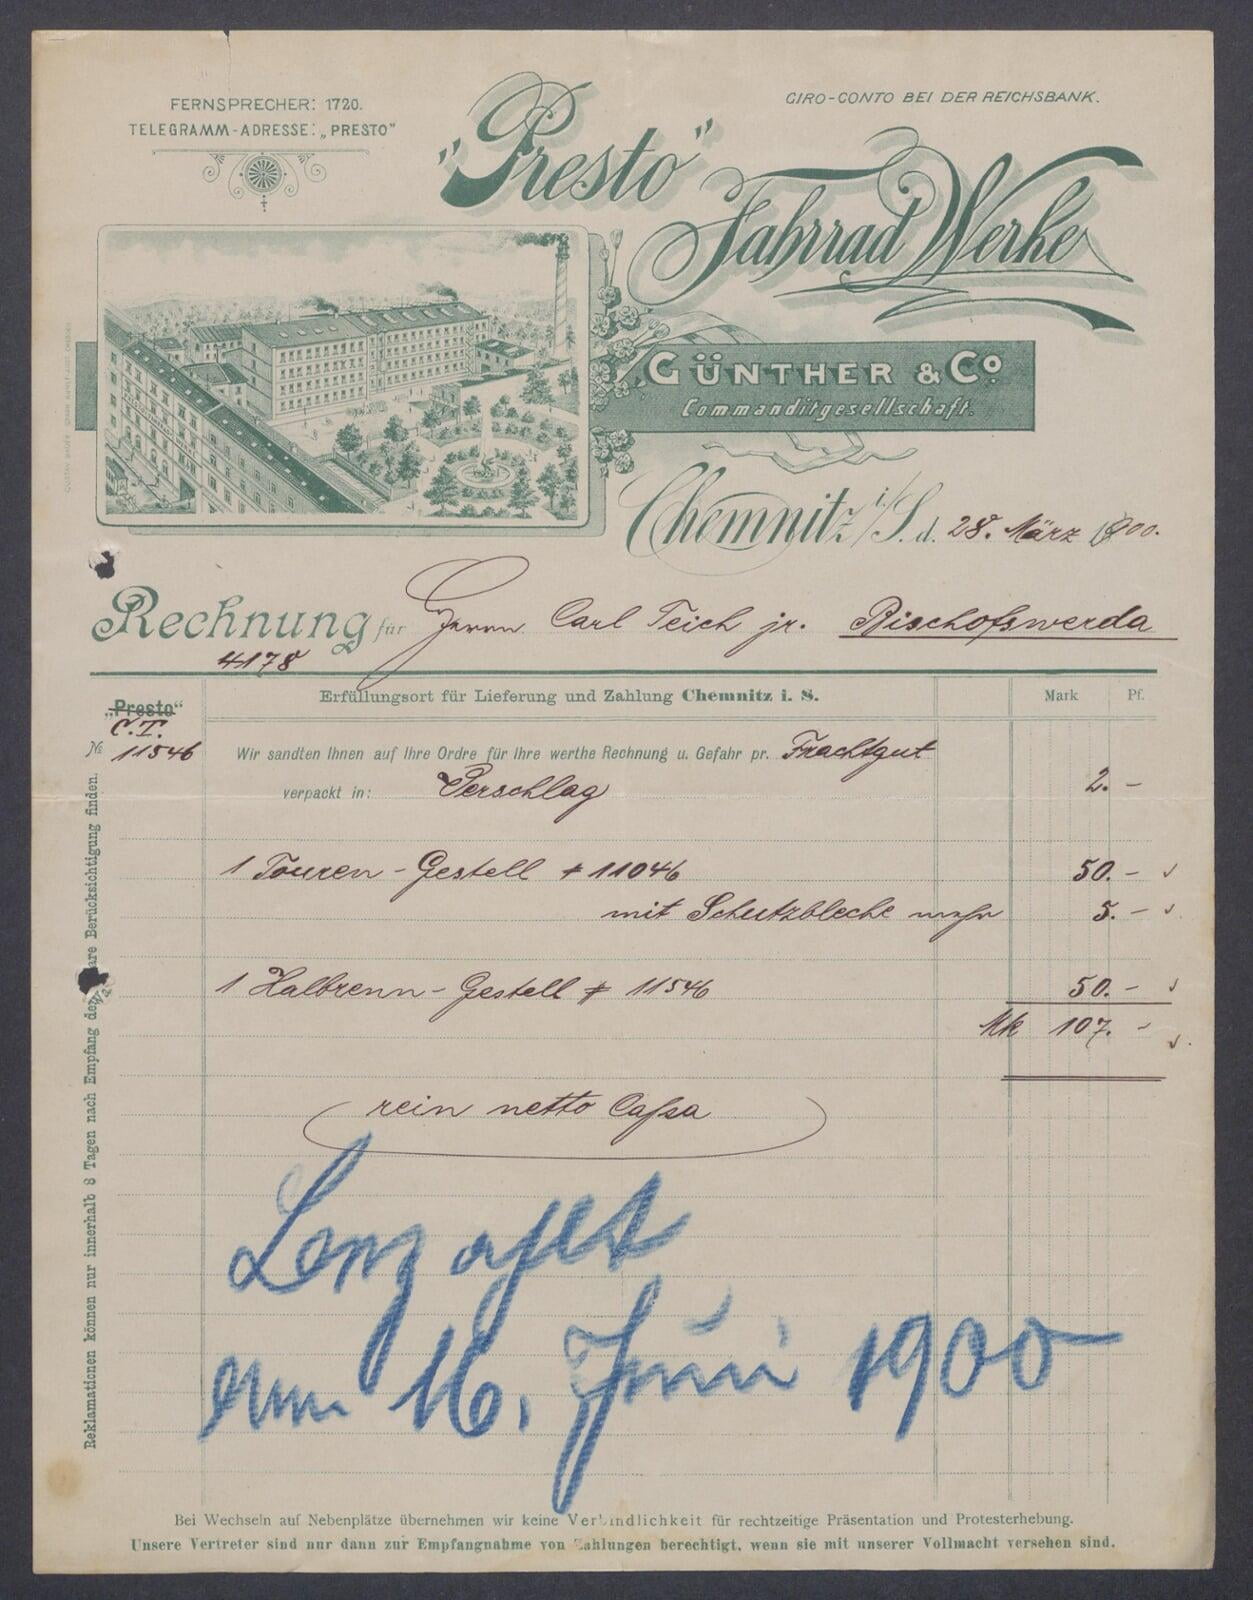 FERNSPRECHER: 1720.
TELEGRAMM-ADRESSE: „PRESTO“
GIRO-CONTO BEI DER REICHSBANK.
"Presto"
Fahrrad Werke
GÜNTHER & Co.
Commanditgesellschaft.
Chemnitz i/S. d. 28. März 1900.
Rechnung für Herrn Carl Teich jr. Bischofswerda
4178
„Presto“
C.T.
No 11546
Erfüllungsort für Lieferung und Zahlung Chemnitz i. S.
Mark Pf.
Wir sandten Ihnen auf Ihre Ordre für Ihre werthe Rechnung u. Gefahr pr. Frachtgut
verpackt in: Verschlag 2. –
1 Touren-Gestell # 11046 50. –
mit Schutzbleche mehr 5. –
1 Halbrenn-Gestell # 11546 50. –
Mk 107. –
rein netto Cassa
am 16. Juni 1900
Reklamationen können nur innerhalb 8 Tagen nach Empfang der Waare Berücksichtigung finden.
Bei Wechseln auf Nebenplätze übernehmen wir keine Verbindlichkeit für rechtzeitige Präsentation und Protesterhebung.
Unsere Vertreter sind nur dann zur Empfangnahme von Zahlungen berechtigt, wenn sie mit unserer Vollmacht versehen sind.